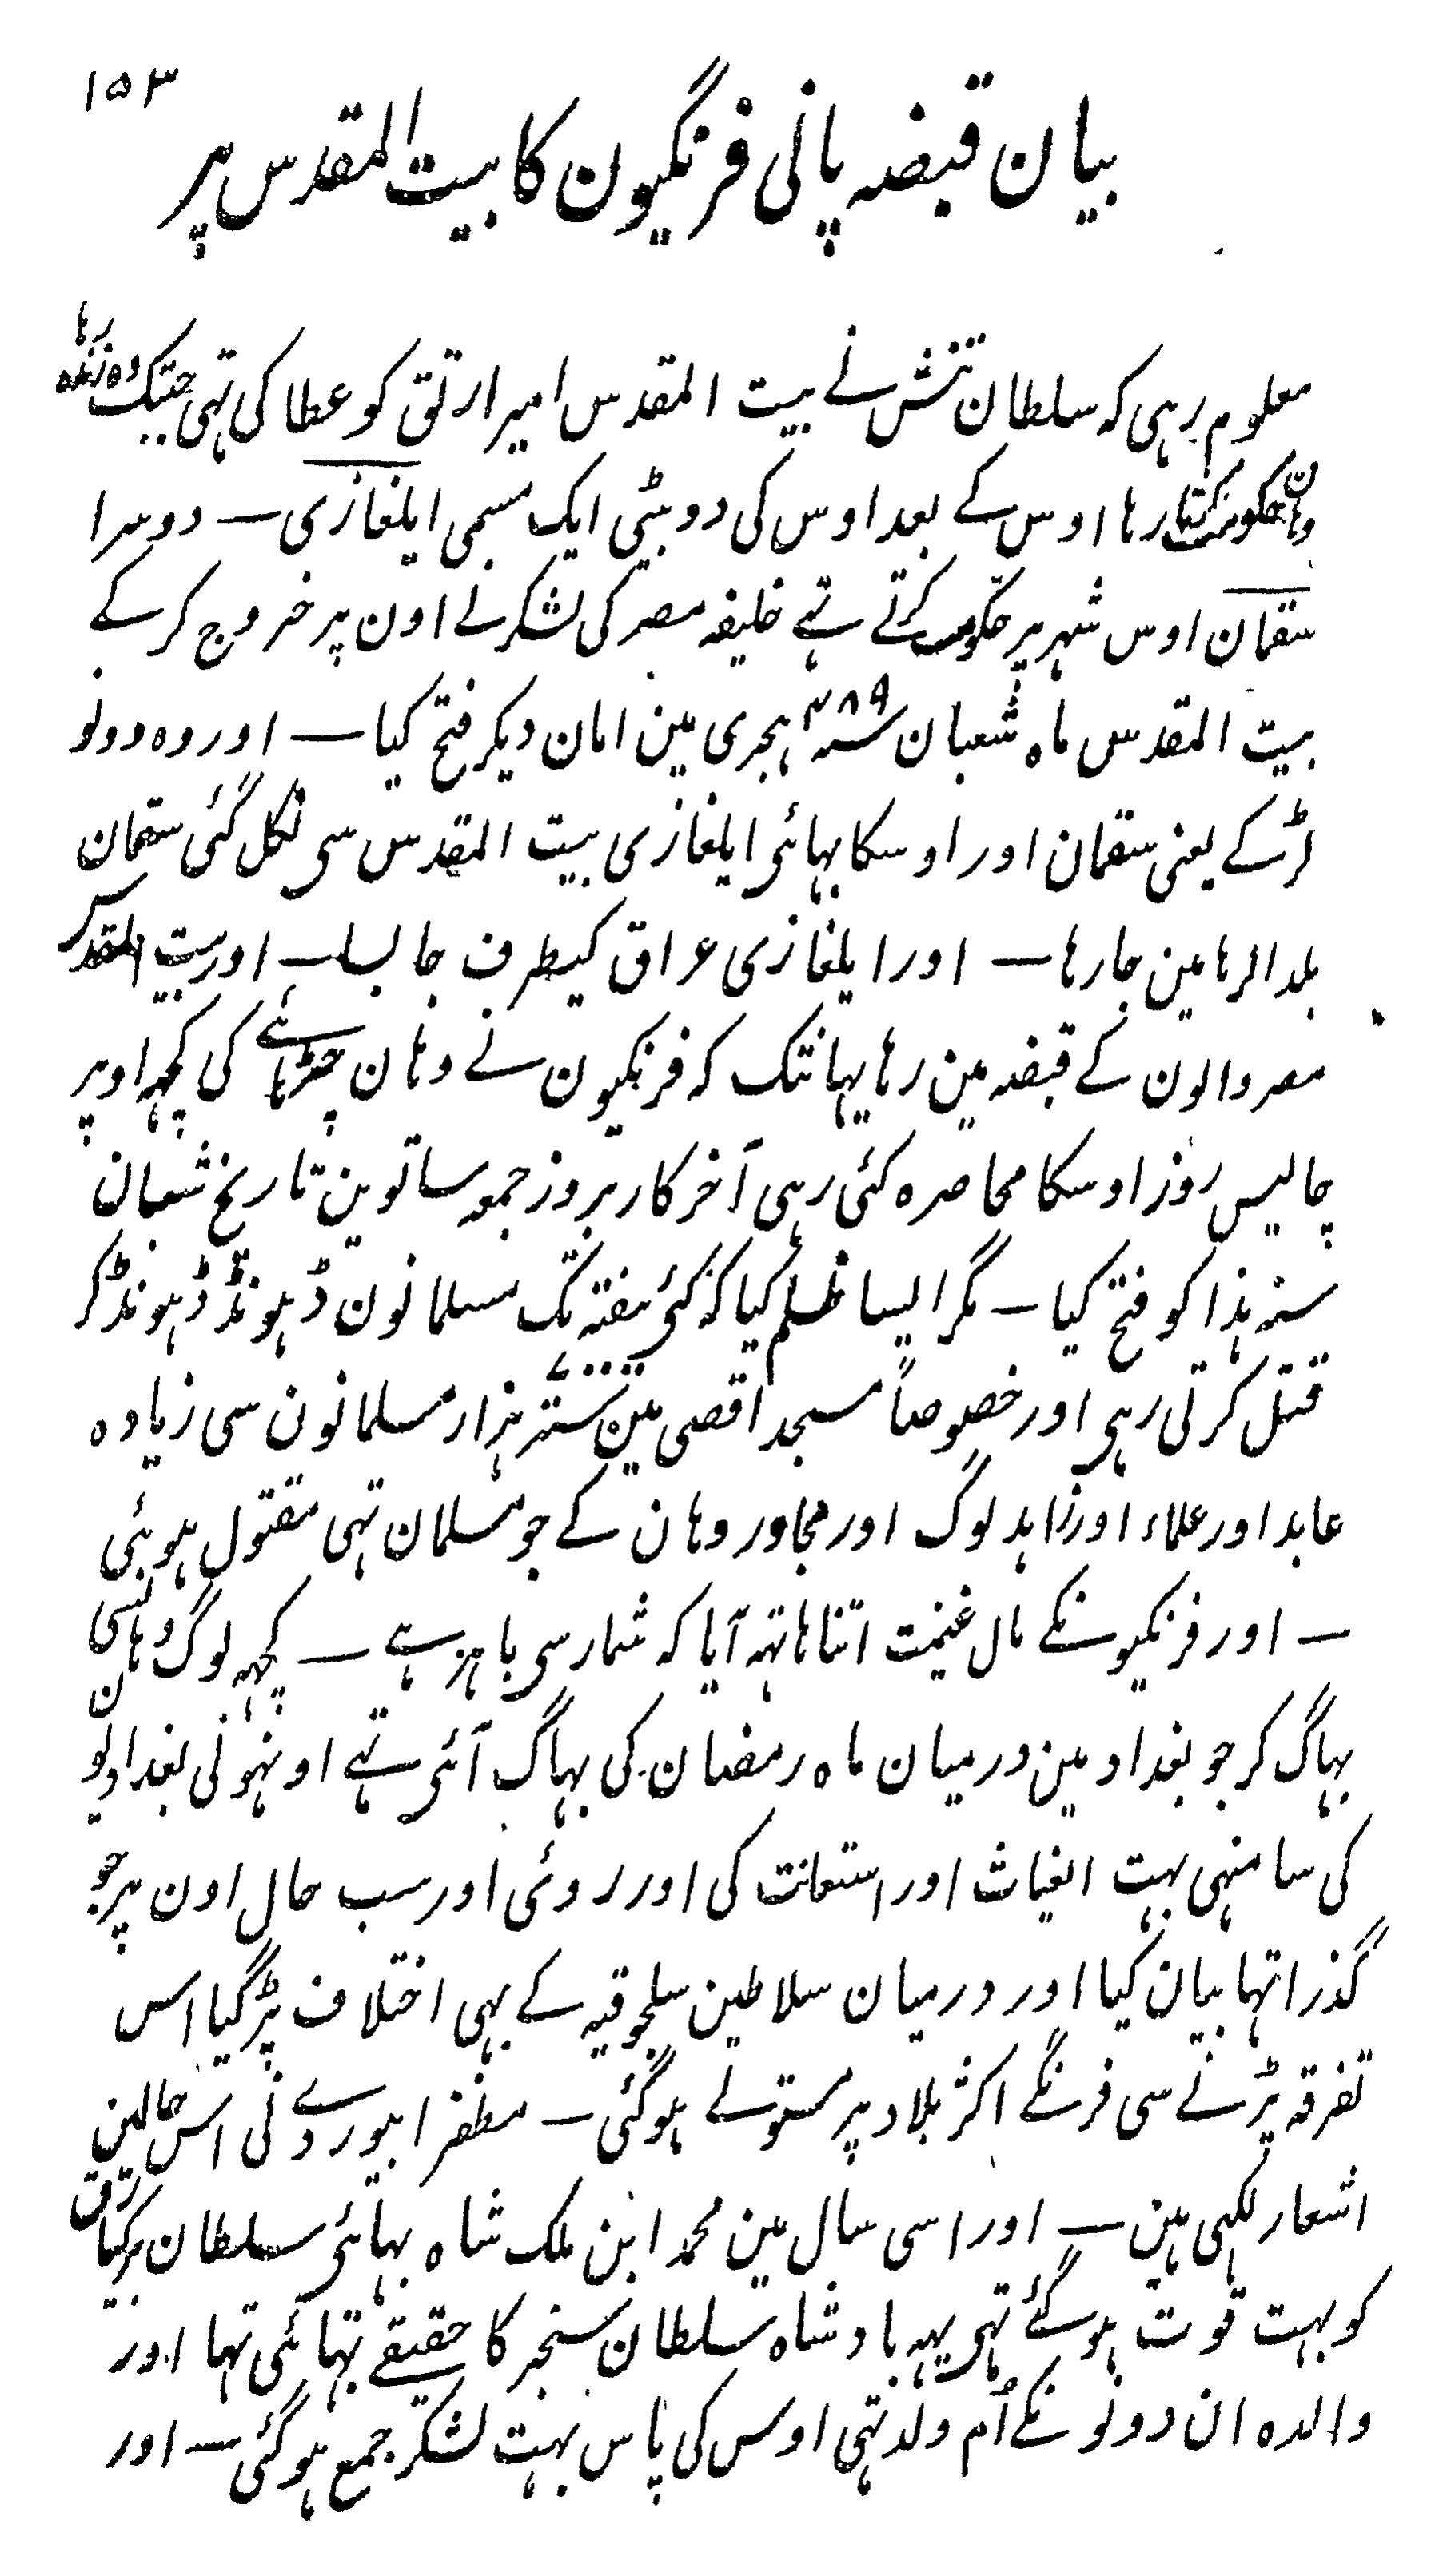 ۱۵۳
بیان قبضہ پانی فرنگیون کا بیت المقدس پر
معلوم رہی کہ سلطان تتش نے بیت المقدس امیر ارتق کو عطا کی تہی جبتک وہ زندہ رہا
وہان حکومت کرتا رہا اوس کے بعد اوس کی دو بیٹی ایک مسمی ایلغازی — دوسرا
سقمان اوس شہر پر حکومت کرتے تہے خلیفہ مصر کی لشکر نے اون پر خروج کر کے
بیت المقدس ماہ شعبان سنہ ۴۸۹ ہجری مین امان دیکر فتح کیا — اور وہ دونو
لڑکے یعنی سقمان اور اوسکا بہائی ایلغازی بیت المقدس سی نکل گئی سقمان
بلد الرہا مین جا رہا — اور ایلغازی عراق کیطرف جا بسا — اور بیت المقدس
مصر والون کے قبضہ مین رہا یہانتک کہ فرنگیون نے وہان چڑہائے کی کچہہ اوپر
چالیس روز اوسکا محاصرہ کئی رہی آخر کار بروز جمعہ ساتوین تاریخ شعبان
سنہ ہذا کو فتح کیا — مگر ایسا ظلم کیا کہ کئی ہفتہ تک مسلمانون ڈہونڈ ڈہونڈ کر
قتل کرتی رہی اور خصوصاً مسجد اقصی مین ستّر ہزار مسلمانون سی زیادہ
عابد اور علماء اور زاہد لوگ اور مجاور وہان کے جو مسلمان تہی مقتول ہوئی
— اور فرنگیونکے مال غنیمت اتنا ہاتہہ آیا کہ شمار سی باہر ہے — کچہہ لوگ وہانسی
بہاگ کر جو بغداد مین درمیان ماہ رمضان کی بہاگ آئی تہے اونہونی بغدادیو
کی سامنہی بہت الغیاث اور استعانت کی اور روئی اور سب حال اون پر جو
گذرا تہا بیان کیا اور درمیان سلاطین سلجوقیہ کے بہی اختلاف پڑ گیا اس
تفرقہ پڑنے سی فرنگے اکثر بلاد پر مستولے ہوگئی — مظفر ابیوردے نی اس حالمین
اشعار لکہی ہین — اور اسی سال مین محمد ابن ملک شاہ بہائی سلطان برکیارق
کو بہت قوت ہوگئے تہی یہہ بادشاہ سلطان سنجر کا حقیقے بہائی تہا اور
والدہ ان دونونکے اُم ولد تہی اوس کی پاس بہت لشکر جمع ہوگئی — اور